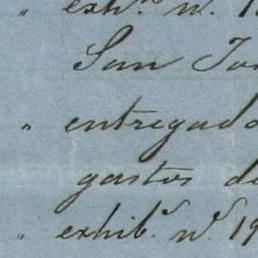 " exhb.º nº. 1
San Jo
" entregado
gastos de
" exhib.º nº 19